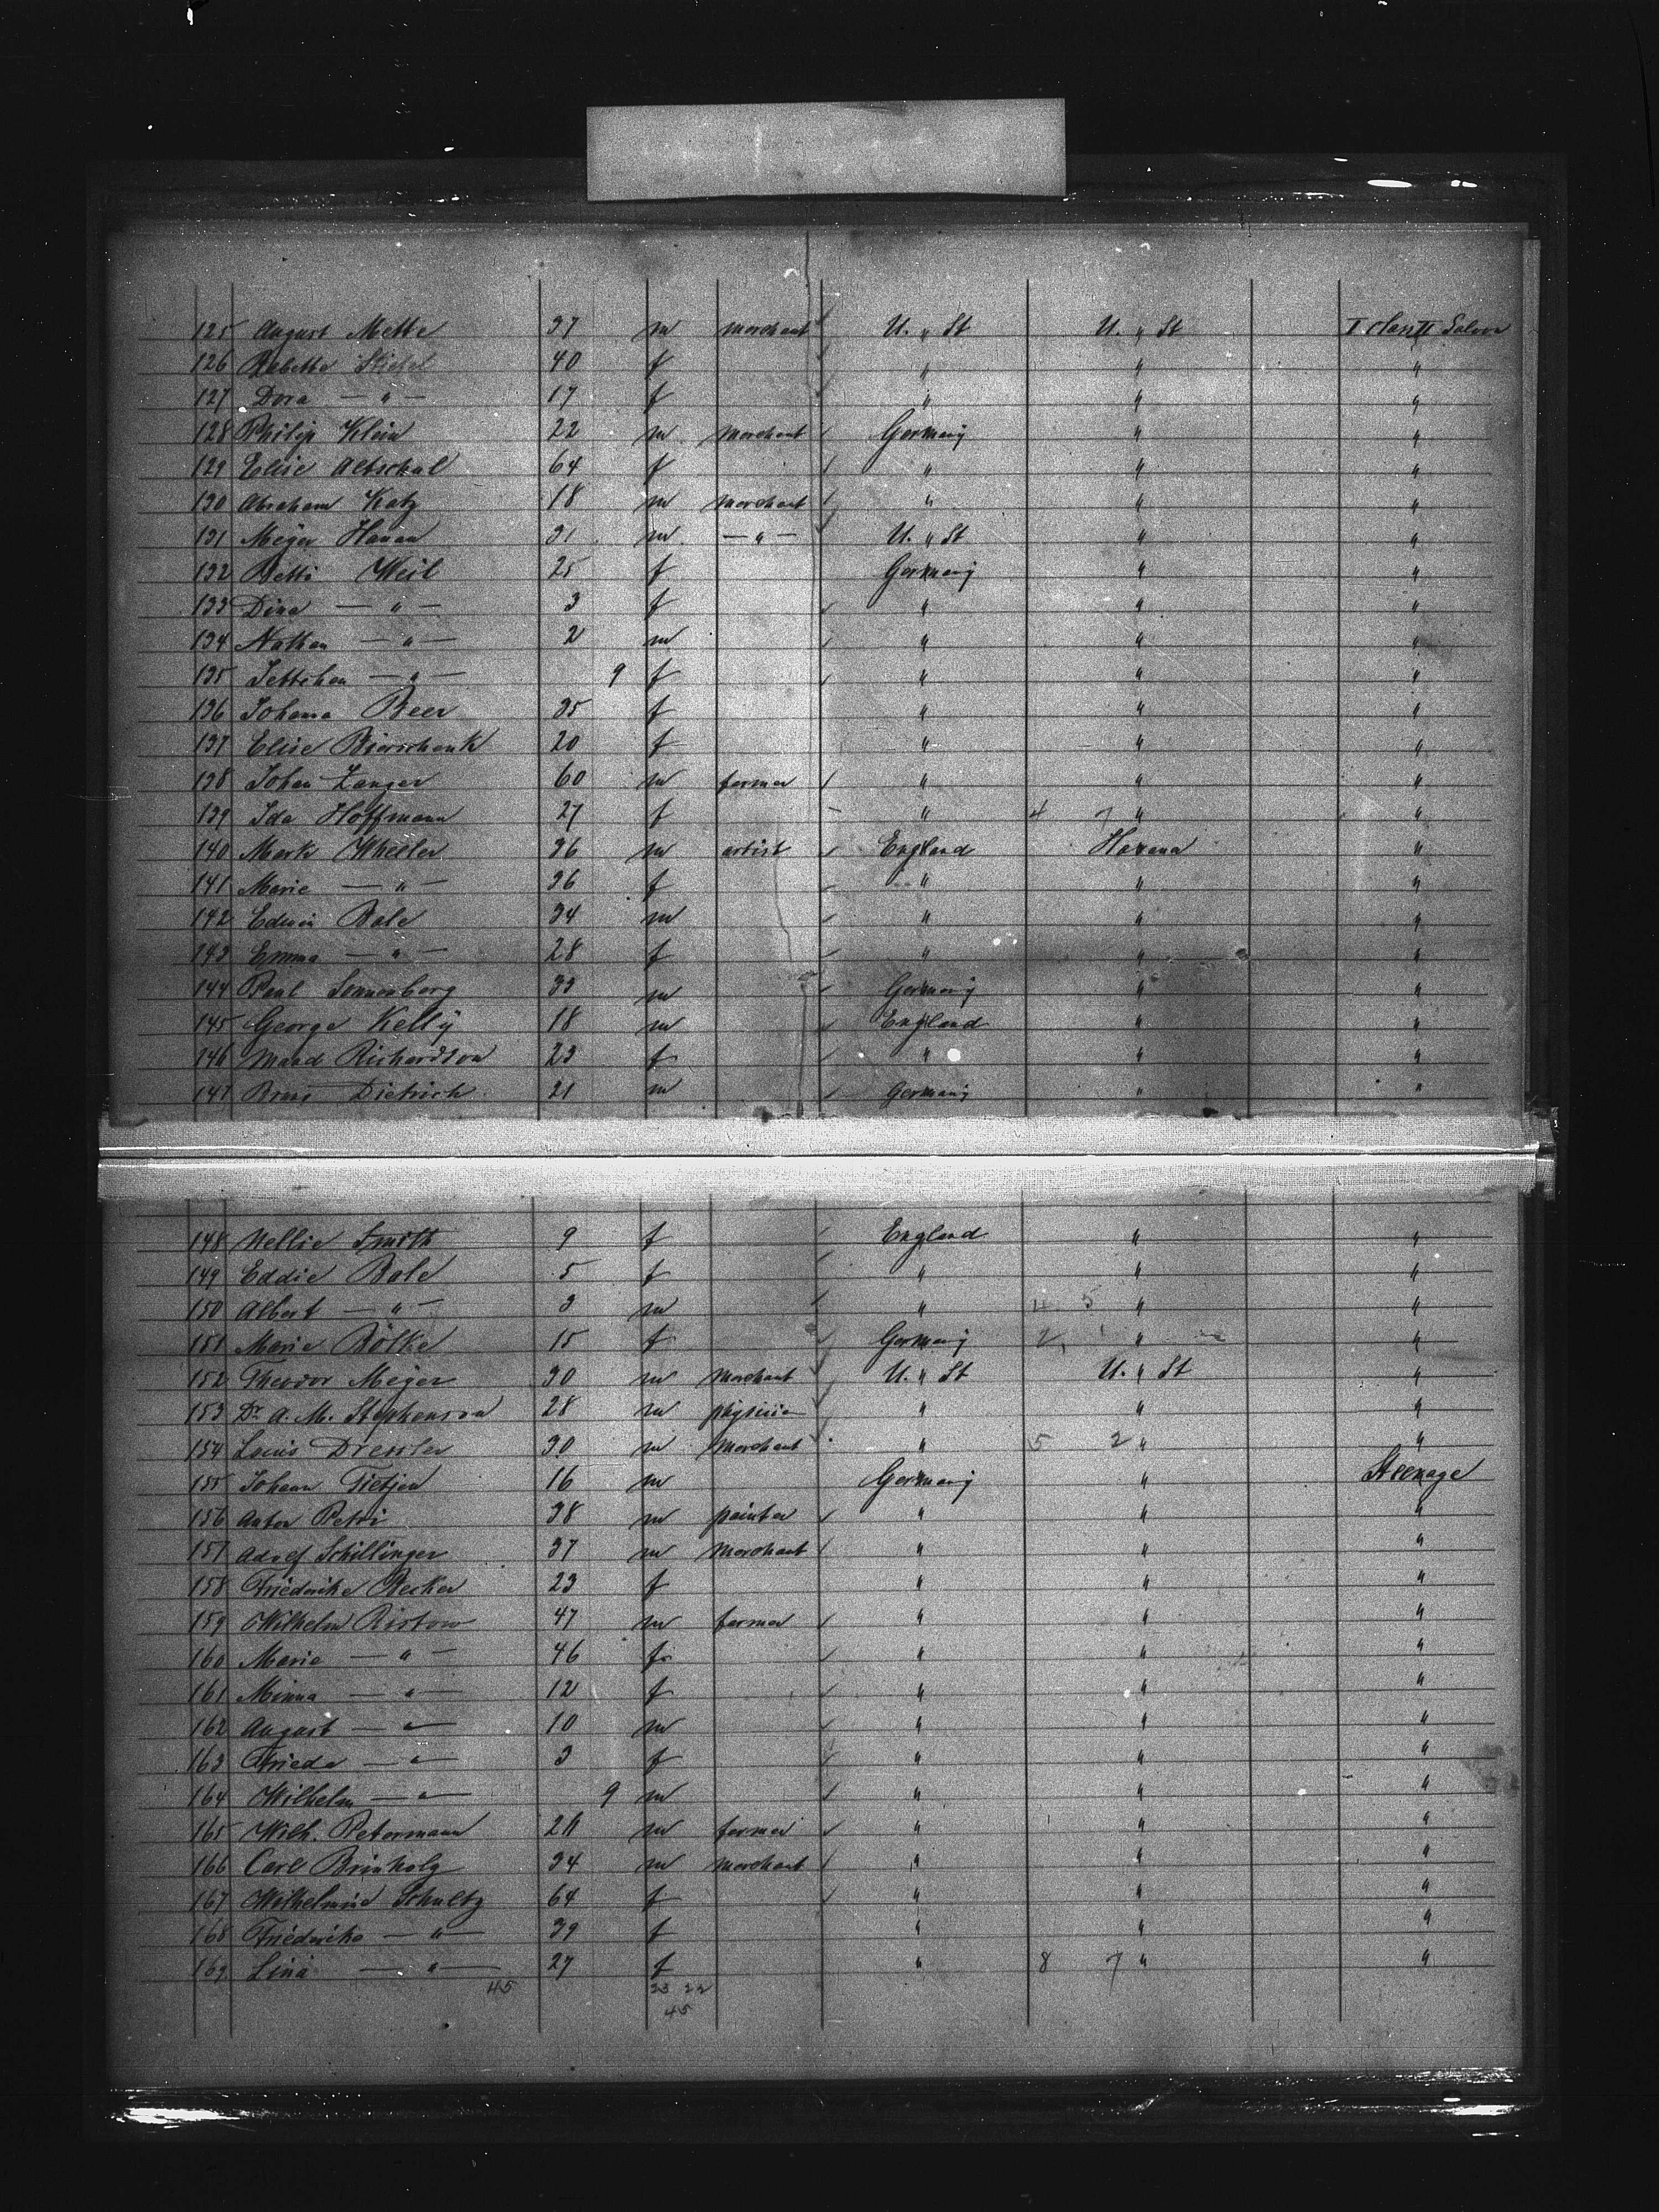 125 August Mette 37 m merchant U. " St U. " St I Class II Saloon
126 Babette Stichel 40 f " " "
127 Dora — " — 17 f " " "
128 Philip Klein 22 m merchant Germany " "
129 Elise Altschul 64 f " " "
130 Abraham Katz 18 m merchant " " "
131 Meyer Hanau 31 m — " — U. " St " "
132 Betti Weil 25 f Germany " "
133 Dina — " — 3 f " " "
134 Nathan — " — 2 m " " "
135 Jettchen — " — 9 f " " "
136 Johana Beer 35 f " " "
137 Elise Bierschenk 20 f " " "
138 Johan Zanger 60 m farmer " " "
139 Ida Hoffmann 27 f " 4 7 " "
140 Mark Wheeler 36 m artist England Havana "
141 Marie — " — 36 f " " "
142 Edwin Bale 34 m " " "
143 Emma — " — 28 f " " "
144 Paul Sonnenberg 33 m Germany " "
145 George Kelly 18 m England " "
146 Maud Richardson 23 f " " "
147 Dietrich 21 m Germany " "
148 Nellie Smith 9 f England " "
149 Eddie Bale 5 f " " "
150 Albert — " — 3 m " 4 5 " "
151 Marie Bölke 15 f Germany 2 " "
152 Theodor Meyer 30 m merchant U. " St U. " St "
153 Dr. A. M. Stephenson 28 m physician " " "
154 Louis Dressler 30 m merchant " 5 2 " "
155 Johann Tietjen 16 m Germany " Steerage
156 Anton Petri 38 m painter " " "
157 Adolf Schillinger 37 m merchant " " "
158 Friederike Becker 23 f " " "
159 Wilhelm Ristow 47 m farmer " " "
160 Marie — " — 46 f " " "
161 Minna — " — 12 f " " "
162 August — " — 10 m " " "
163 Frieda — " — 3 f " " "
164 Wilhelm — " — 9 m " " "
165 Wilh. Petermann m farmer " " "
166 Carl Brinholz 34 m merchant " " "
167 Wilhelmine Schultz 64 f " " "
168 Friederike — " — 39 f " " "
169 Lina — " — 27 f " 8 7 " "
45 23 22
45